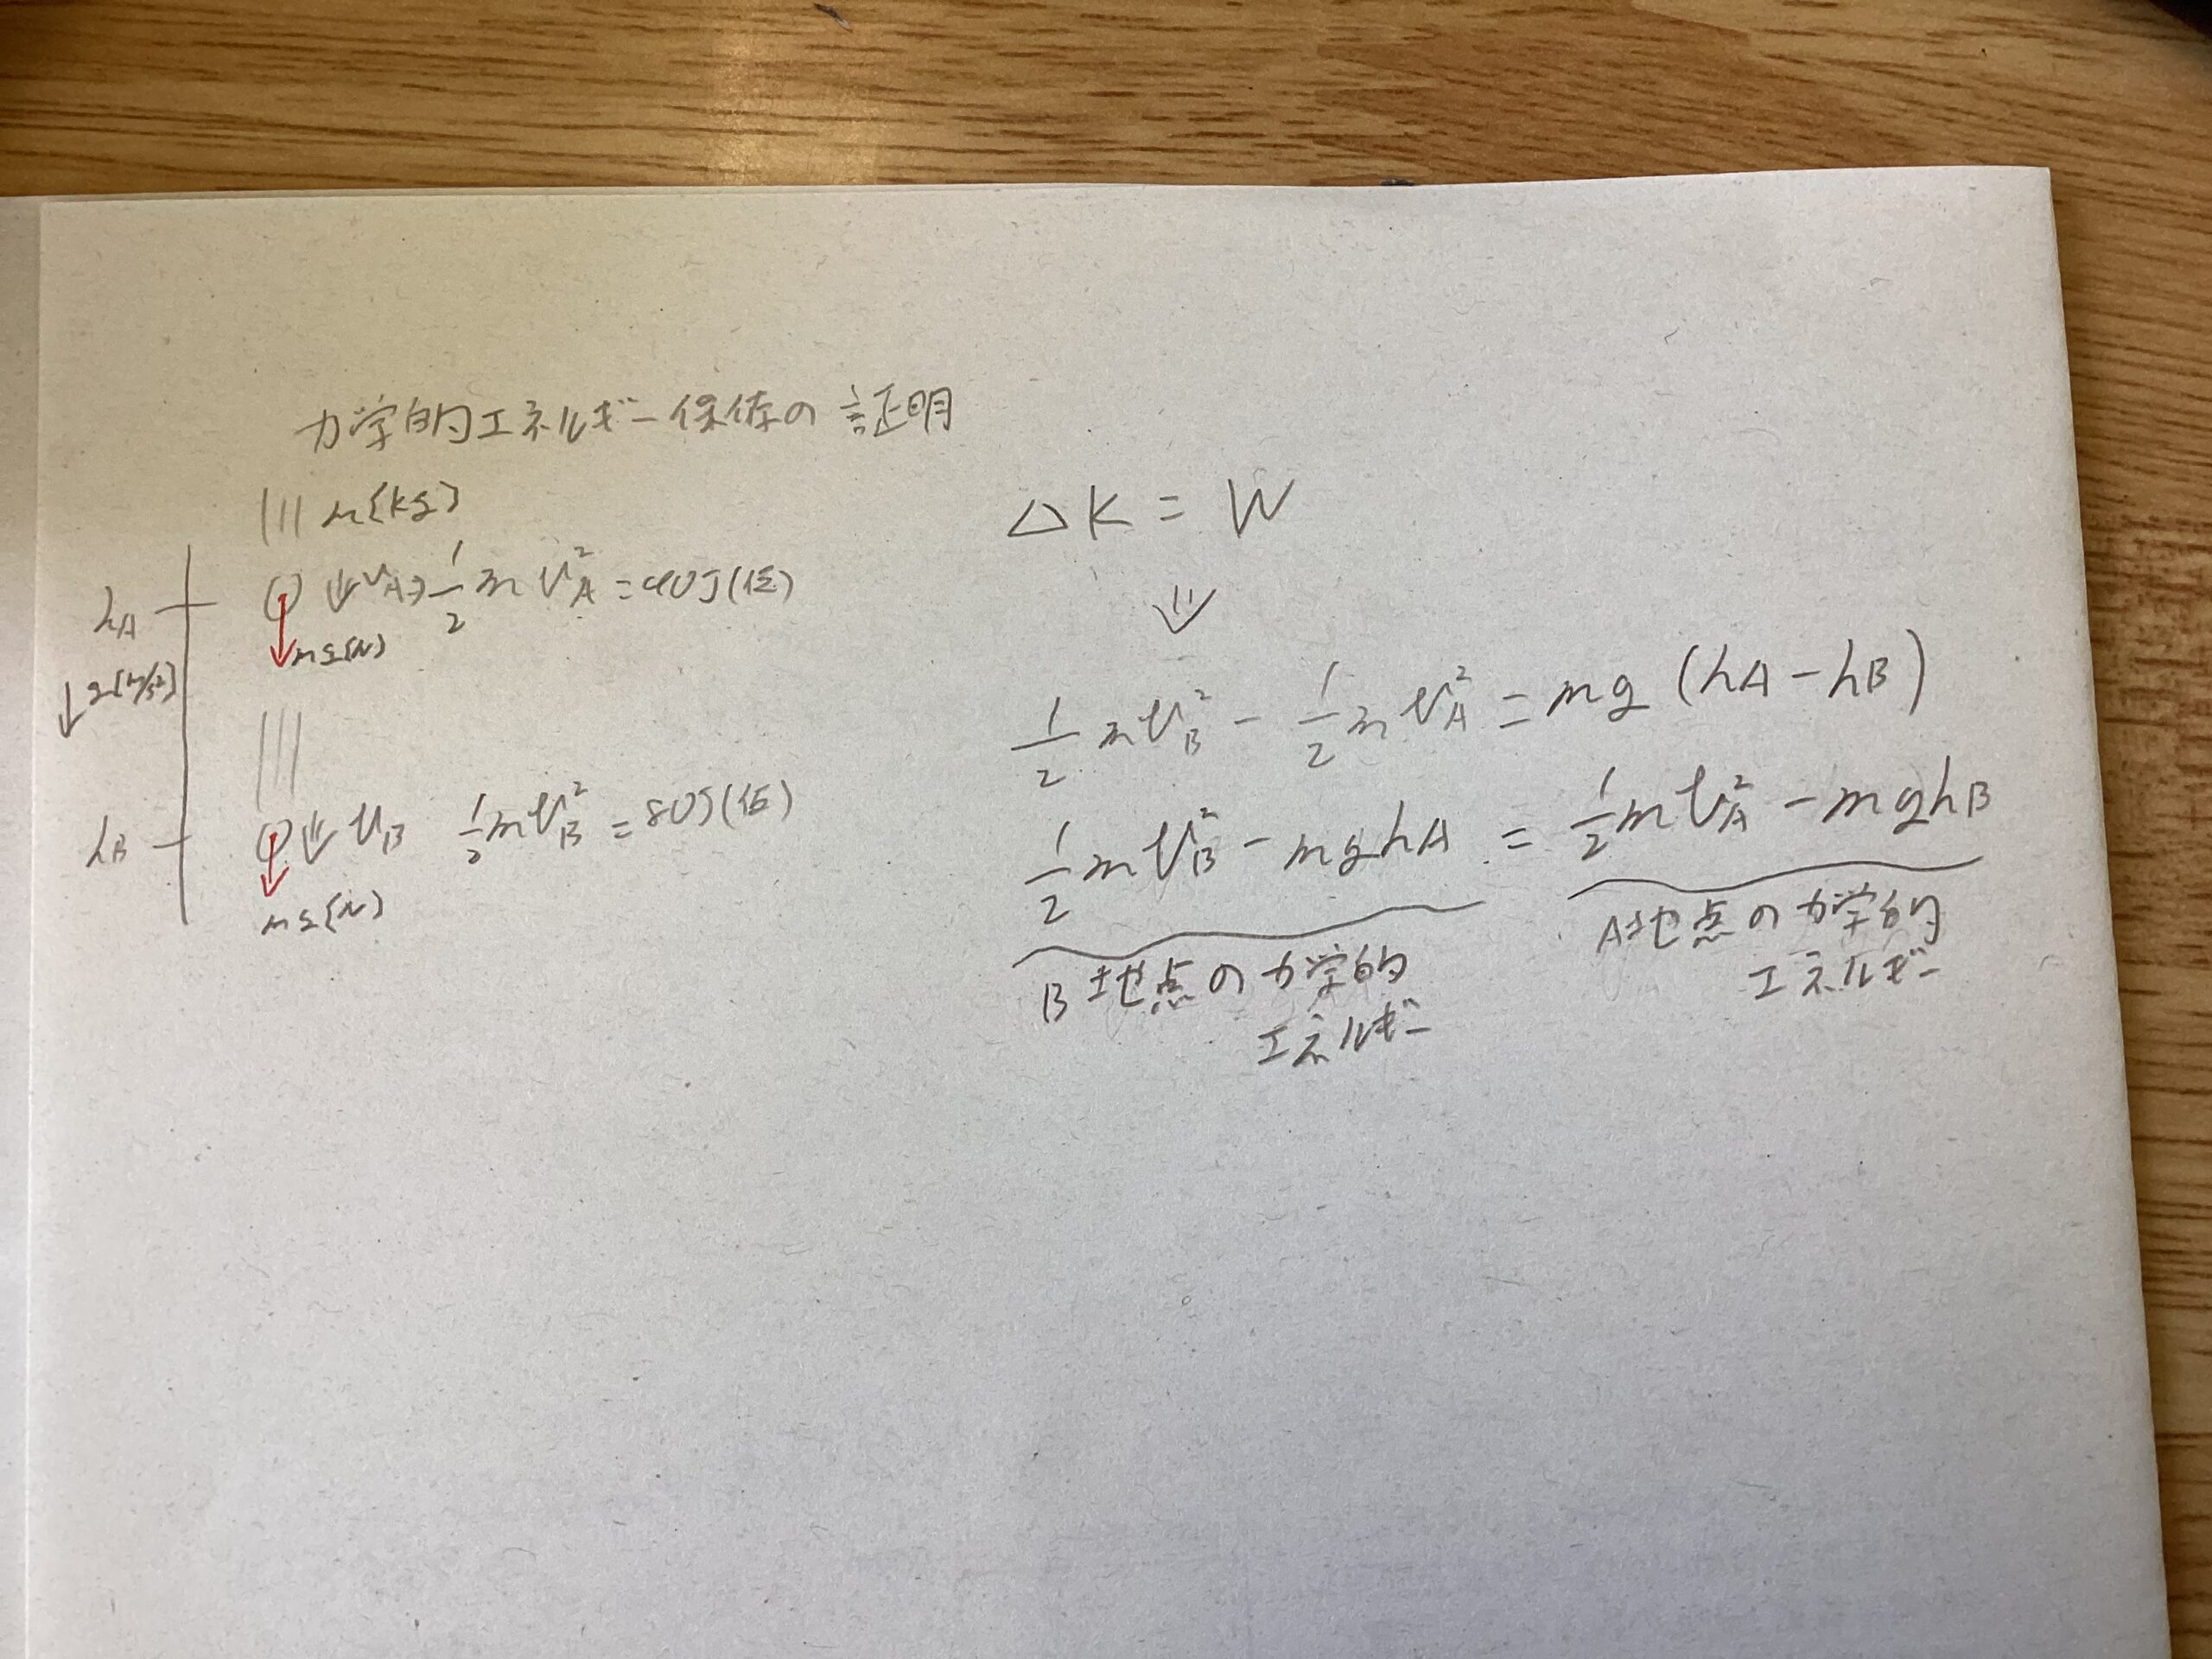 力学的エネルギー保存の証明
m[kg]
hA
vA → 1/2 m v_A^2 = 40J(仮)
mg[N]
↓g[m/s²]
hB
vB 1/2 m v_B^2 = 80J(仮)
mg[N]
△K = W
⇓
1/2 m v_B^2 - 1/2 m v_A^2 = mg (hA - hB)
1/2 m v_B^2 - mghA = 1/2 m v_A^2 - mghB
B地点の力学的
エネルギー
A地点の力学的
エネルギー